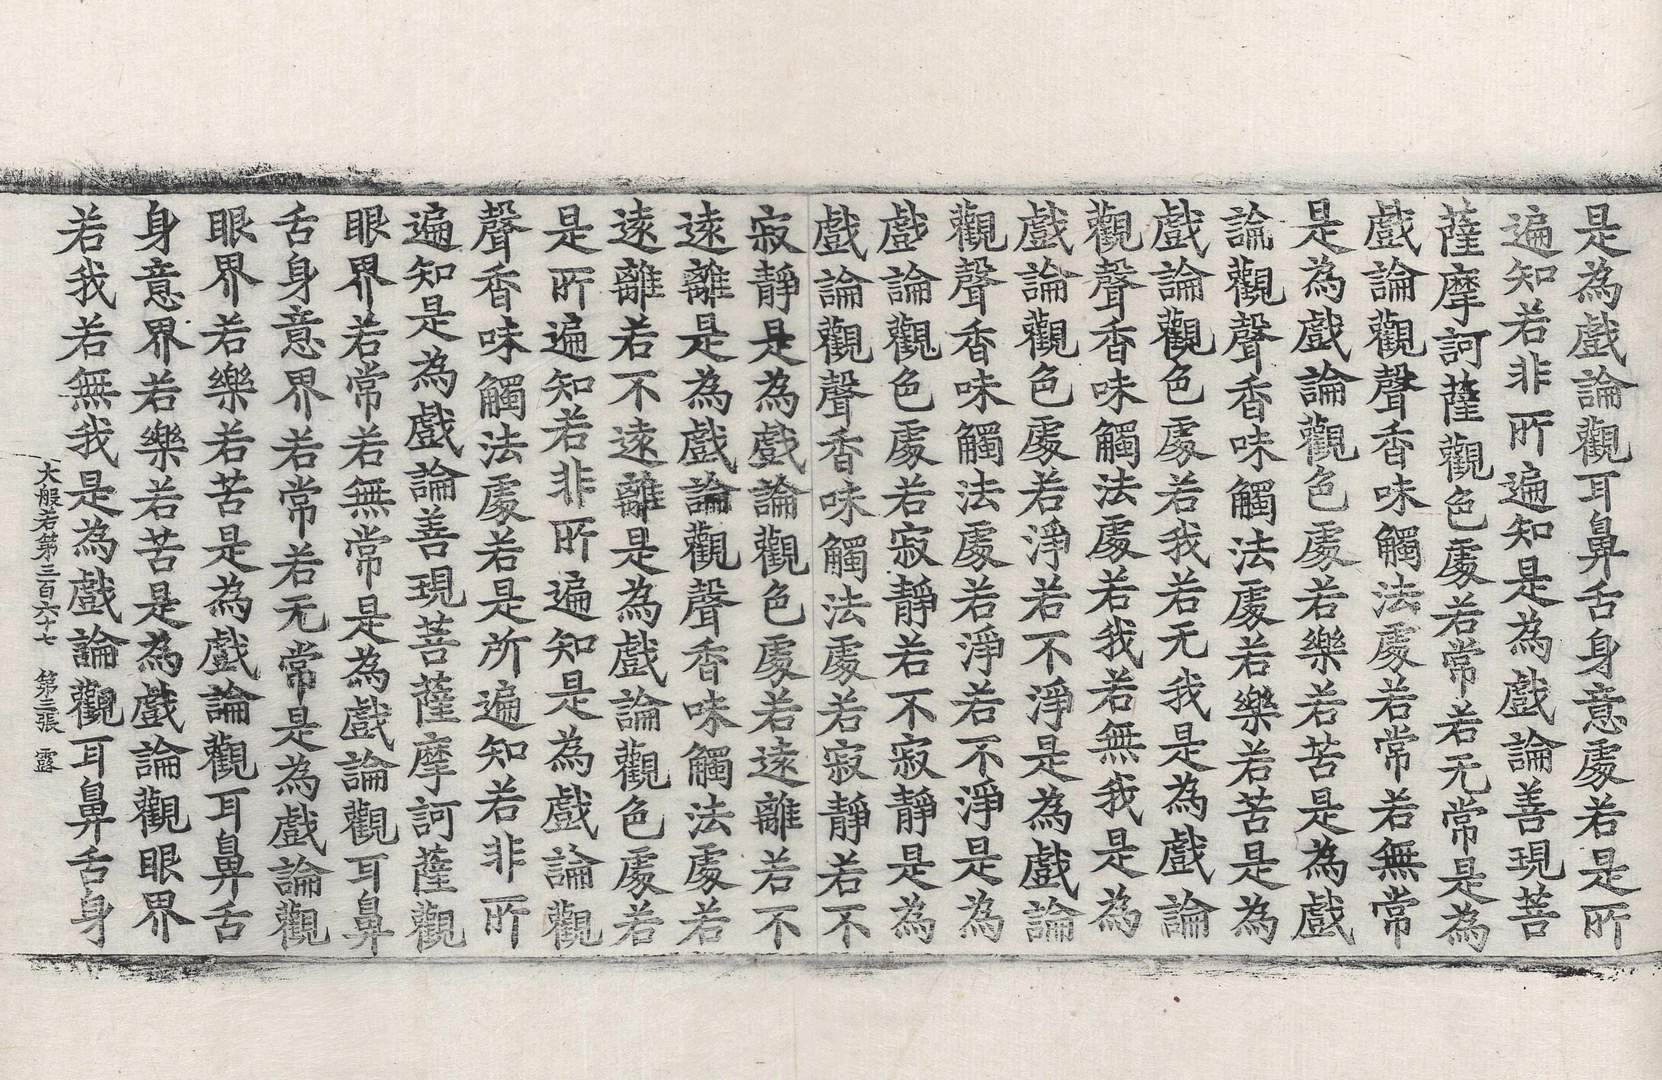 是為戲論觀耳鼻舌身意處若是所
遍知若非所遍知是為戲論善現菩
薩摩訶薩觀色處若常若无常是為
戲論觀聲香味觸法處若常若無常
是為戲論觀色處若樂若苦是為戲
論觀聲香味觸法處若樂若苦是為
戲論觀色處若我若无我是為戲論
觀聲香味觸法處若我若無我是為
戲論觀色處若淨若不淨是為戲論
觀聲香味觸法處若淨若不淨是為
戲論觀色處若寂靜若不寂靜是為
戲論觀聲香味觸法處若寂靜若不
寂靜是為戲論觀色處若遠離若不
遠離是為戲論觀聲香味觸法處若
遠離若不遠離是為戲論觀色處若
是所遍知若非所遍知是為戲論觀
聲香味觸法處若是所遍知若非所
遍知是為戲論善現菩薩摩訶薩觀
眼界若常若無常是為戲論觀耳鼻
舌身意界若常若无常是為戲論觀
眼界若樂若苦是為戲論觀耳鼻舌
身意界若樂若苦是為戲論觀眼界
若我若無我是為戲論觀耳鼻舌身
大般若第三百六十七 第三張 露